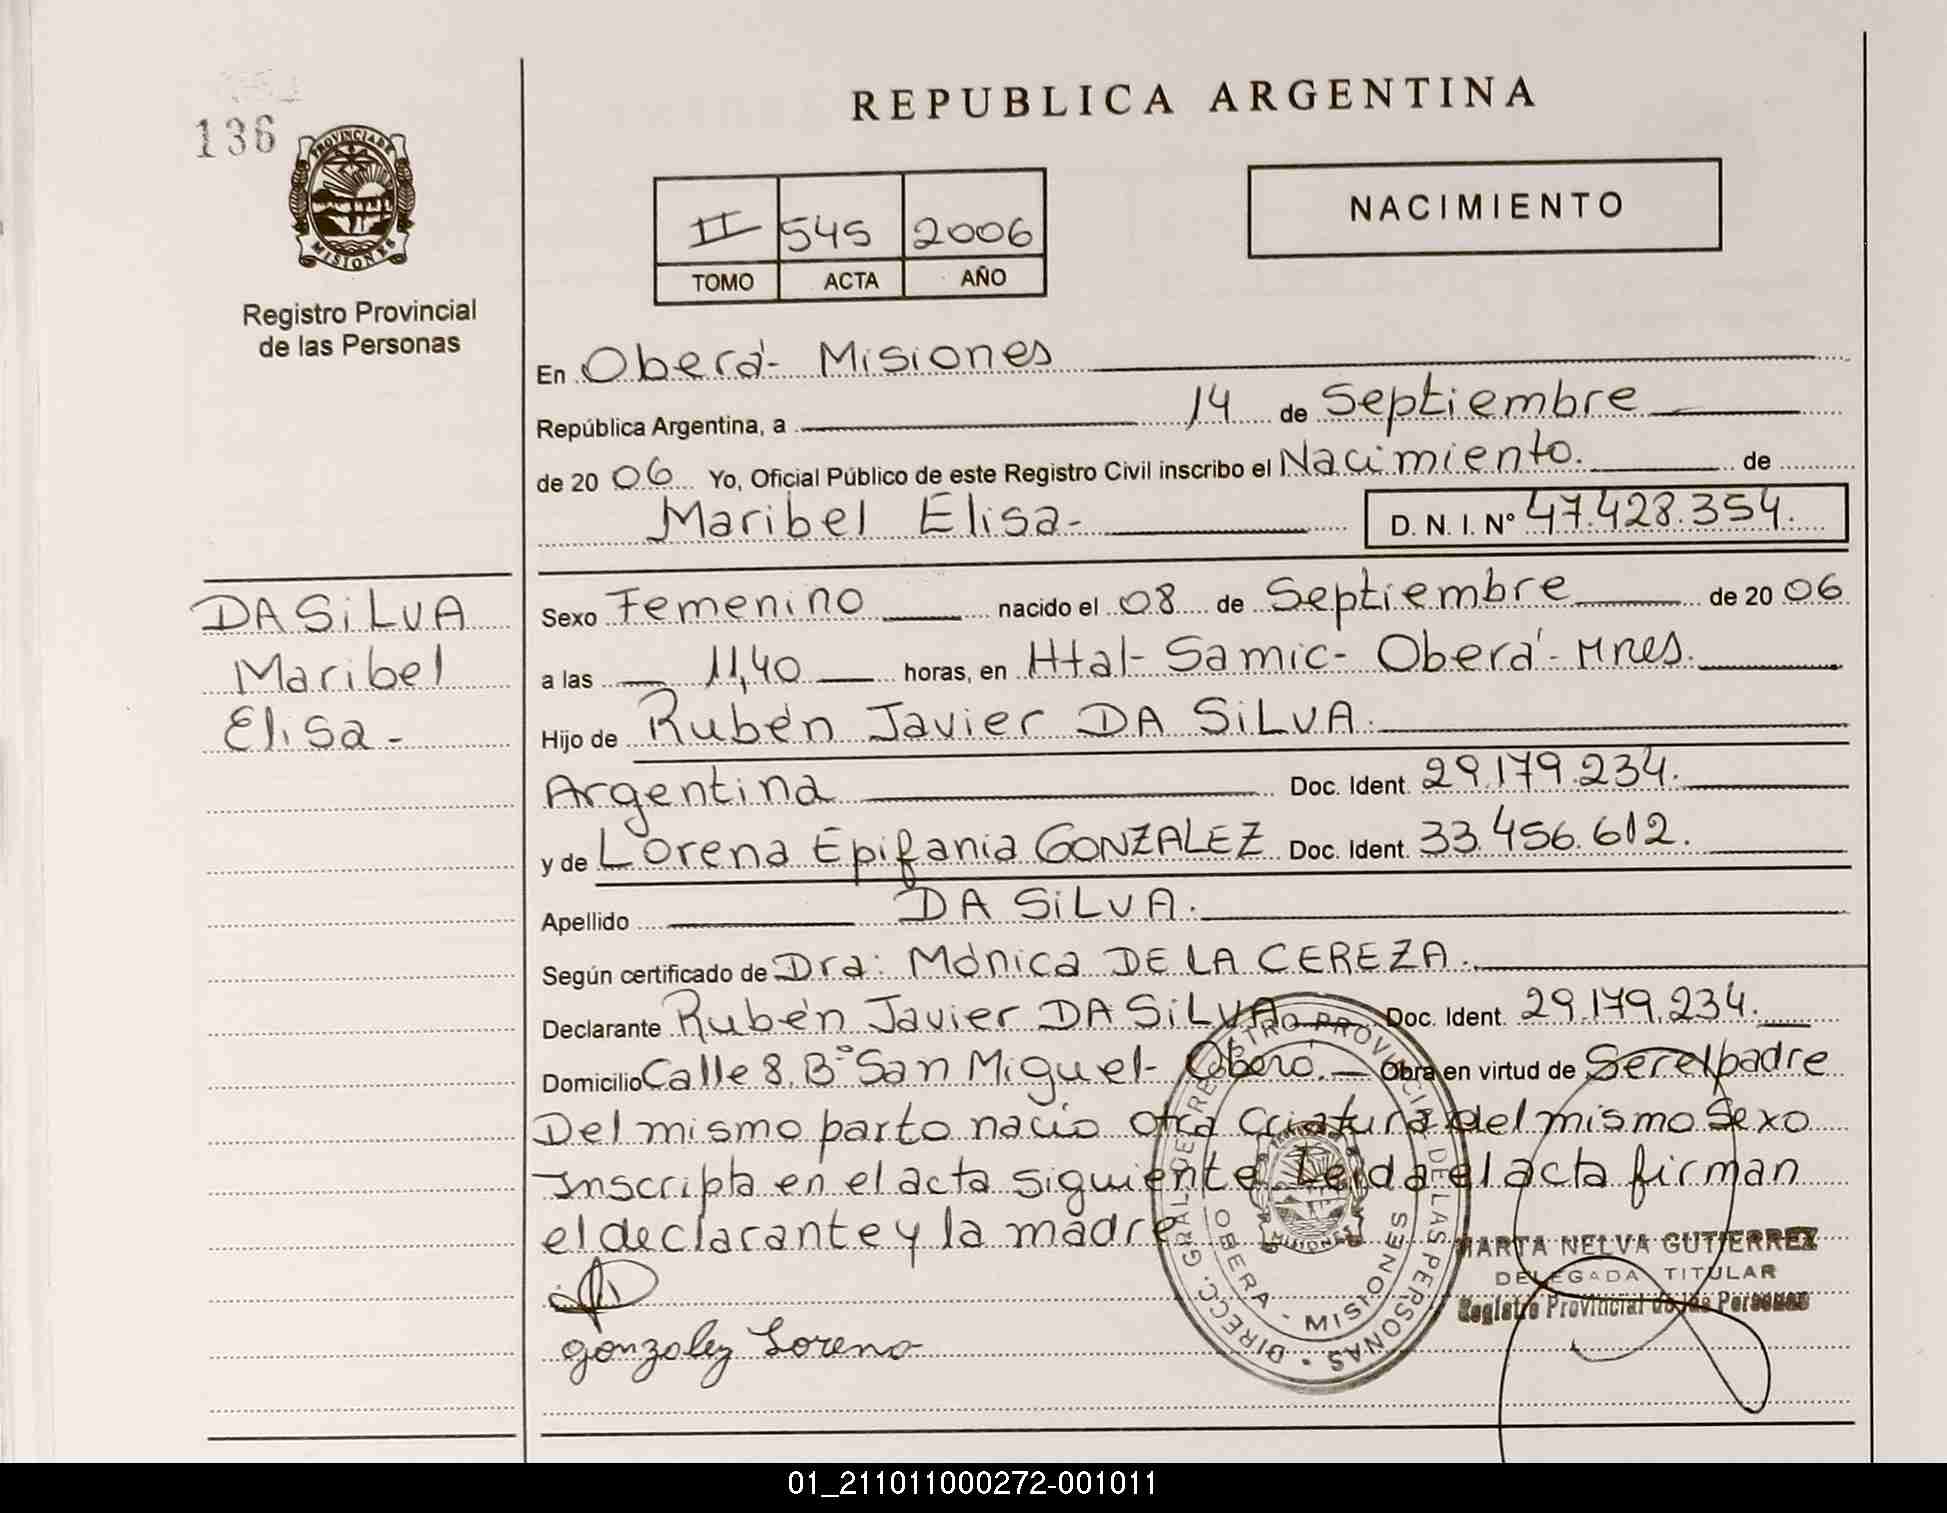 REPUBLICA ARGENTINA
136
PROVINCIA DE
MISIONES
Registro Provincial
de las Personas
II 545 2006
TOMO ACTA AÑO
NACIMIENTO
En Oberá- Misiones
República Argentina, a 14 de Septiembre
de 2006 Yo, Oficial Público de este Registro Civil inscribo el Nacimiento. de
Maribel Elisa- D. N. I. Nº 47.428.354.
DA SiLVA
Maribel
Elisa-
Sexo Femenino nacido el 08 de Septiembre de 2006
a las 11,40 horas, en Htal- Samic- Oberá- Mnes.
Hijo de Rubén Javier DA SiLVA.
Argentina Doc. Ident. 29.179.234.
y de Lorena Epifania GONZALEZ Doc. Ident. 33.456.612.
Apellido DA SiLVA.
Según certificado de Dra: Mónica DE LA CEREZA.
Declarante Rubén Javier DA SiLVA Doc. Ident. 29.179.234.
Domicilio Calle 8. Bº San Miguel- Oberá. Obra en virtud de Ser el padre
Del mismo parto nació otra criatura del mismo Sexo
Inscripta en el acta siguiente. Leida el acta firman
el declarante y la madre
DIRECC. GRAL. DE REGISTRO PROVINCIAL DE LAS PERSONAS
OBERA - MISIONES
MISIONES
MARTA NELVA GUTIERREZ
DELEGADA TITULAR
Registro Provincial de las Personas
gonzalez Lorena
01_211011000272-001011